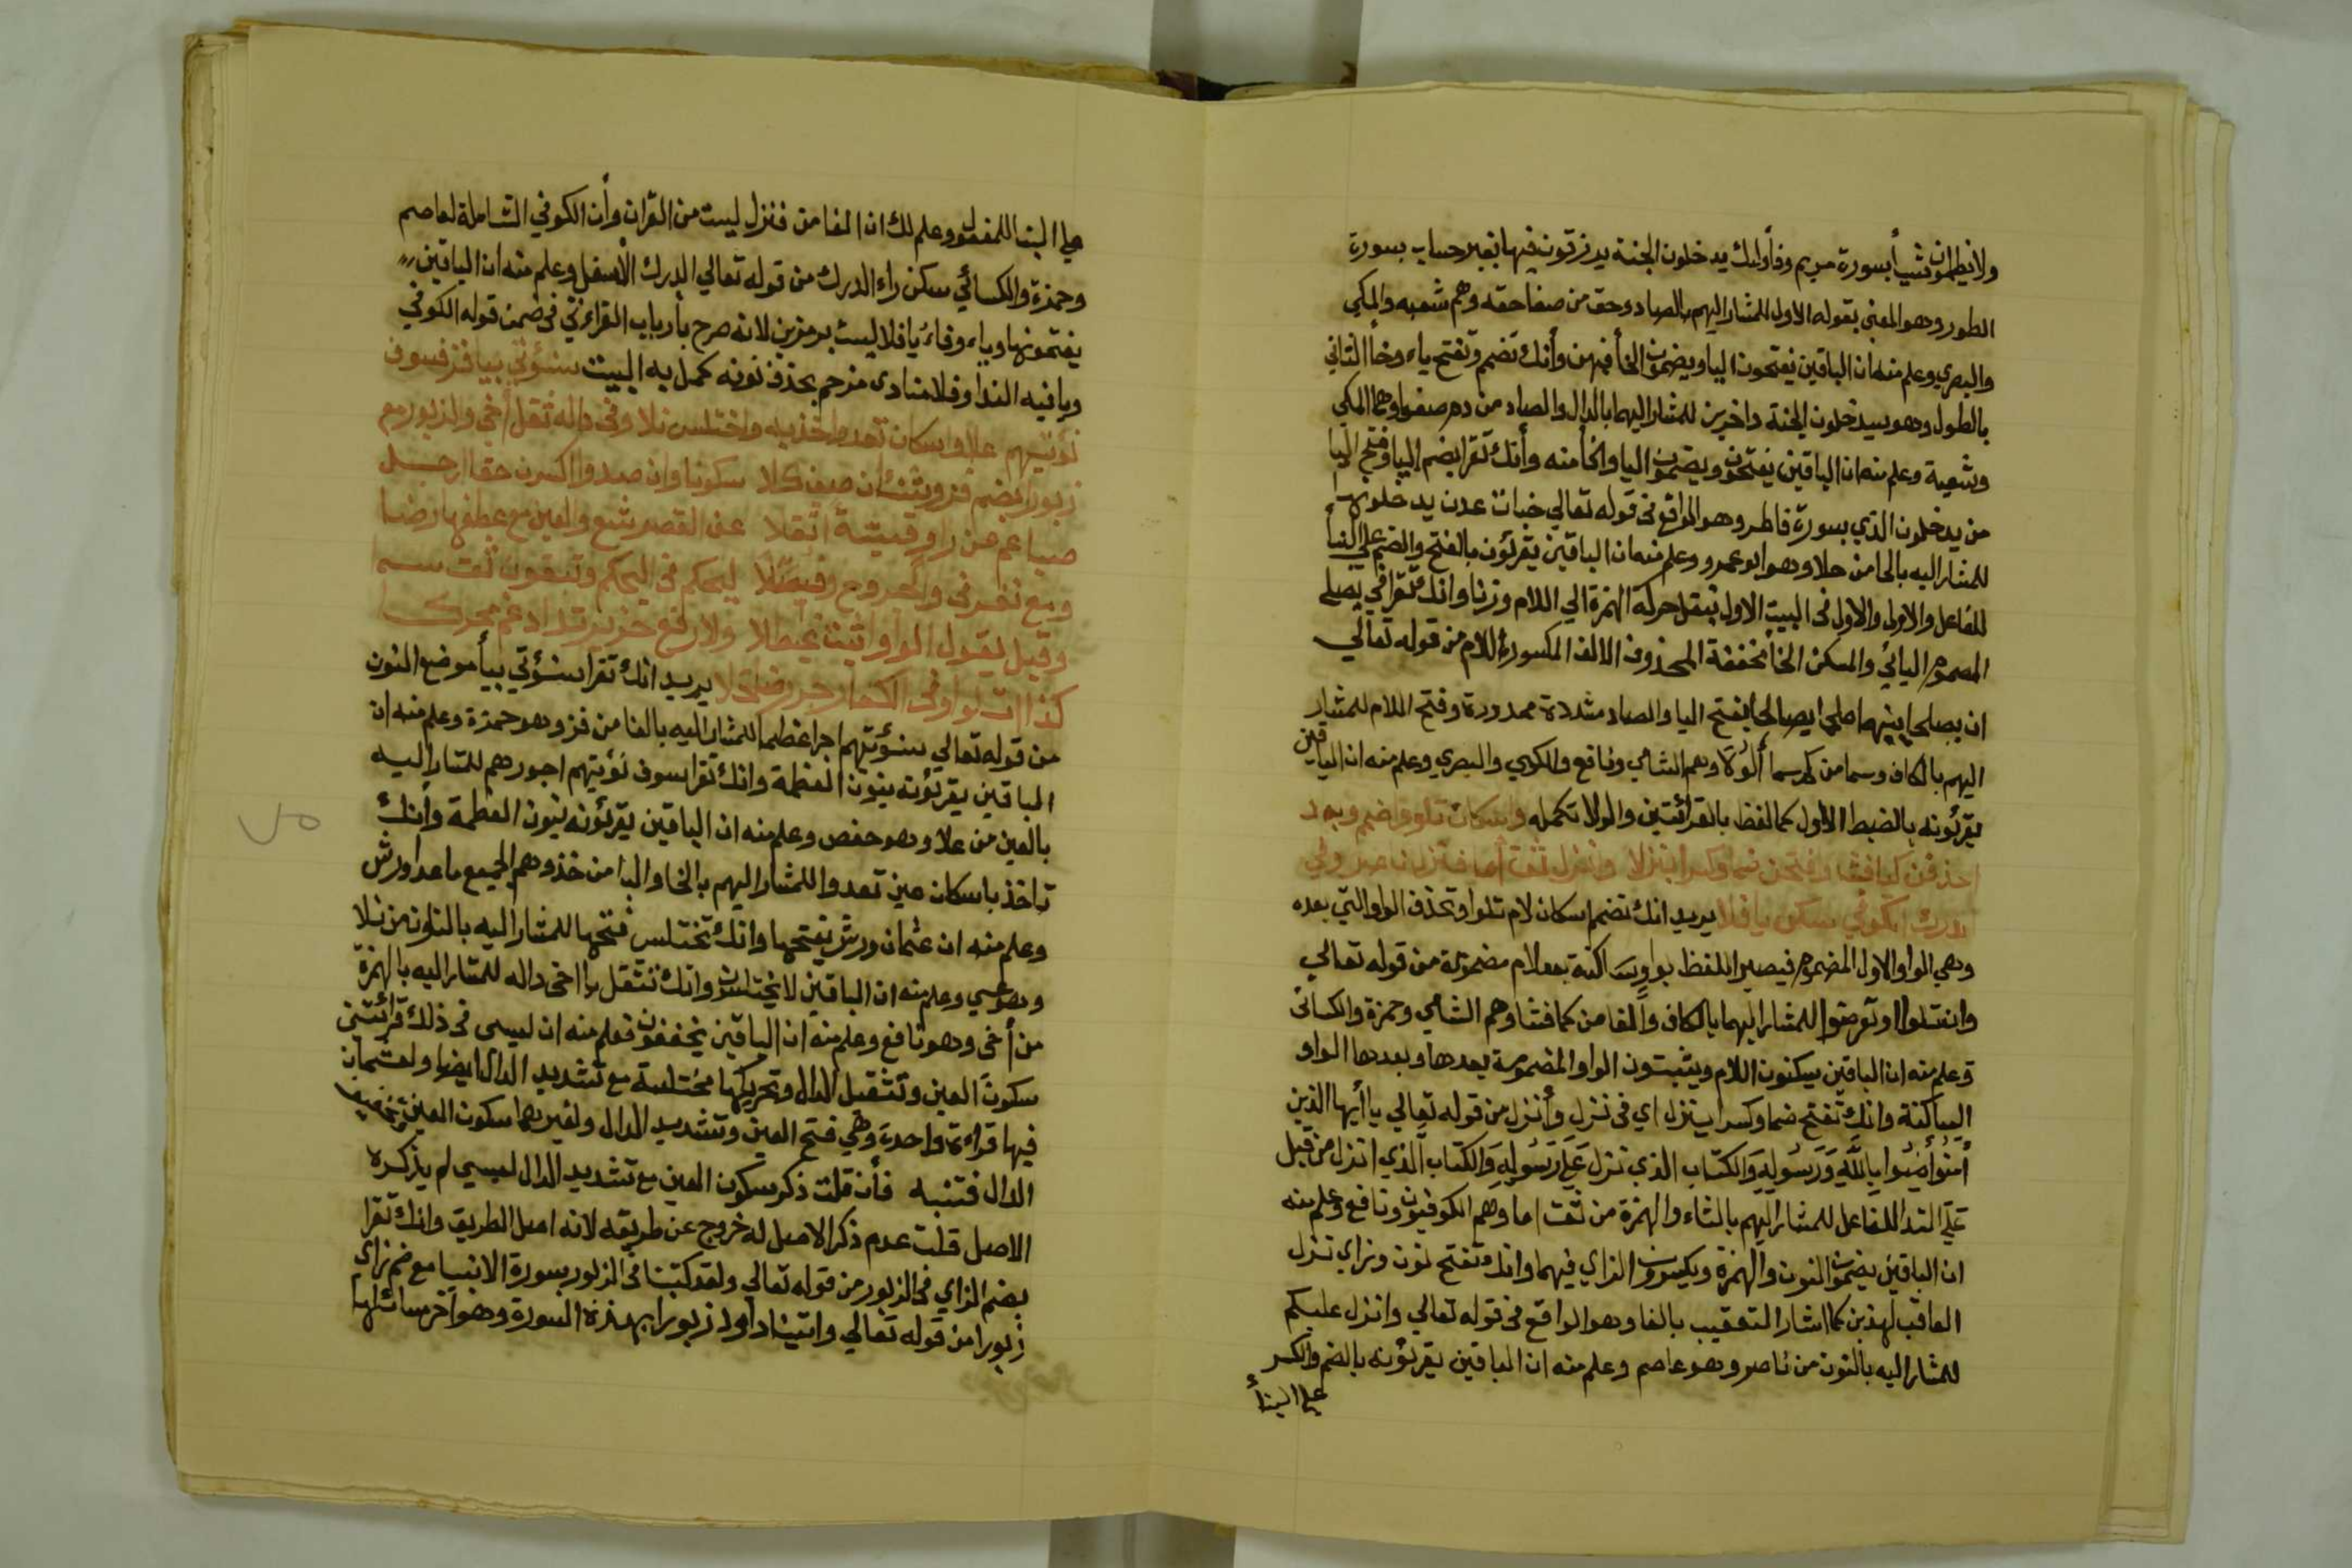 ولا يظلمون شيأ بسورة مريم وفأولئك يدخلون الجنة يرزقون فيها بغير حساب بسورة
الطور وهو المعنى بقوله الاول للمشار اليهم بالصاد وحق من صفا حقه وهم شعبه والمكي
والبصري وعلم منه ان الباقين يفتحون اليا ويضمون الخا فيهن وأنك تضم وتفتح ياء وخأ الثاني
بالطول وهو سيدخلون الجنة داخرين للمشار اليهما بالدال والصاد من دم صفوا وهما المكي
وشعبة وعلم منه ان الباقين يفتحون ويضمون اليا والخا منه وأنك تقرا بضم اليا وفتح اليا
من يدخلون الذي بسورة فاطر وهو الواقع في قوله تعالي جنات عدن يدخلونها
للمشار اليه بالحا من حلا وهو ابو عمرو وعلم منه ان الباقين يقرئون بالفتح والضم علي البنأ
للفاعل والاولى والاول في البيت الاول بنقل حركة الهمزة الي اللام وزنا وانك تقرا في يصلح
المضموم اليائي والمسكن الخا مخففة المحذوف الالف المكسورة اللام من قوله تعالي
ان يصلحا بينهما صلحا يصالحا بفتح اليا والصاد مشددة ممدودة وفتح اللام للمشار
اليهم بالكاف وسما من كم سما ألولا وهم الشامي ونافع والمكي والبصري وعلم منه ان الباقين
يقرئونه بالضبط الاول كما لفظ بالقرائتين والولا تكمله واسكان تلوو اضم وبعد
احذفن كما فشا وفتحن ضما وكسرا بنزلا وأنزل ثقت أما فنزل ناصر وفي
درك الكوفي سكن يا فلا يريد انك تضم اسكان لام تلوا وتحذف الواو التي بعده
وهي الواو الاول المضموم فيصير اللفظ بواو ساكنة بعد لام مضمومة من قوله تعالي
وان تلوا او تعرضوا للمشار اليهما بالكاف والفا من كما فشا وهم الشامي وحمزة والكسائي
وعلم منه ان الباقين يسكنون اللام ويثبتون الواو المضمومة بعدها وبعدها الواو
الساكنة وانك تفتح ضما وكسرا بنزل اي في نزل وأنزل من قوله تعالي يا أيها الذين
أمنوا أمنوا بالله ورسوله والكتاب الذي نزل علي رسوله والكتاب الذي انزل من قبل
علي البنا للفاعل للمشار اليهم بالثاء والهمزة من ثقت اما وهم الكوفيون ونافع وعلم منه
ان الباقين يضمون النون والهمزة ويكسرون الزاي فيهما وانك تفتح نون وزاي نزل
العاقب لهذين كما اشار التعقيب بالفا وهو الواقع في قوله تعالي وانزل عليكم
للمشار اليه بالنون من ناصر وهو عاصم وعلم منه ان الباقين يقرئونه بالضم والكسر
علي البنأ
علي البنا للمفعول وعلم لك ان الفا من فنزل ليست من القران وأن الكوفي الشاملة لعاصم
وحمزة والكسائي سكن راء الدرك من قوله تعالي الدرك الأسفل وعلم منه ان الباقين
يفتحونها وياء وفاء يا فلا ليست برمزين لانه صرح بأرباب القراءتي في ضمن قوله الكوفي
ويا فيه الندا وفلا منادى مرخم بحذف نونه كمل به البيت سنؤتي بيا فز فسوف
نؤتيهم علا واسكان تعدوا خذ به واختلس نلا وفي داله ثقل أخي والزبور مع
زبورا بضم فز وشنئان صف كلا سكونا وان صدوا اكسرن حقا ارجل
صبا عم عن راو قسية اثقلا عن القصر شع والعين مع عطفها رضا
ومع نفر في والجروح رفيصلا ليحكم في اليحكم وتبغون ثقت سم
وقبل يقول الواو اثبت غيطلا ولا رفع حز يرتد ادغم محركا
كذا ات لوا وفي الكفار جر رضى حلا يريد انك تقرا سنؤتي بيأ موضع النون
من قوله تعالي سنؤتيهم اجرا عظيما للمشار اليه بالفا من فز وهو حمزة وعلم منه ان
الباقين يقرئونه بنون العظمة وانك تقرا سوف نؤتيهم اجورهم للمشار اليه
بالعين من علا وهو حفص وعلم منه ان الباقين يقرئونه بنون العظمة وأنك
تاخذ باسكان عين تعدوا للمشار اليهم بالخا والبا من خذ وهم الجميع ما عدا ورش
وعلم منه ان عثمان ورش يفتحها وانك تختلس فتحها للمشار اليه بالنون من نلا
وهو عيسي وعلم منه ان الباقين لا يختلسون وانك تثقل يا اخي داله للمشار اليه بالهمزة
من أخي وهو نافع وعلم منه ان الباقين يخففون فعلم منه ان لعيسى في ذلك قرائتين
سكون العين وتثقيل الدال وتحريكها مختلسة مع تشديد الدال ايضا ولعثمان
فيها قراءة واحدة وهي فتح العين وتشديد الدال ولغيرهما سكون العين وتخفيف
الدال فتنبه فأن قلت ذكر سكون العين مع تشديد الدال لعيسي لم يذكره
الاصل قلت عدم ذكر الاصل له خروج عن طريقه لانه اصل الطريق وانك تقرا
بضم الزاي في الزبور من قوله تعالي ولقد كتبنا في الزبور بسورة الانبيا مع ضم زاي
زبورا من قوله تعالي واتينا داود زبورا بهذه السورة وهو اخر مسائلها